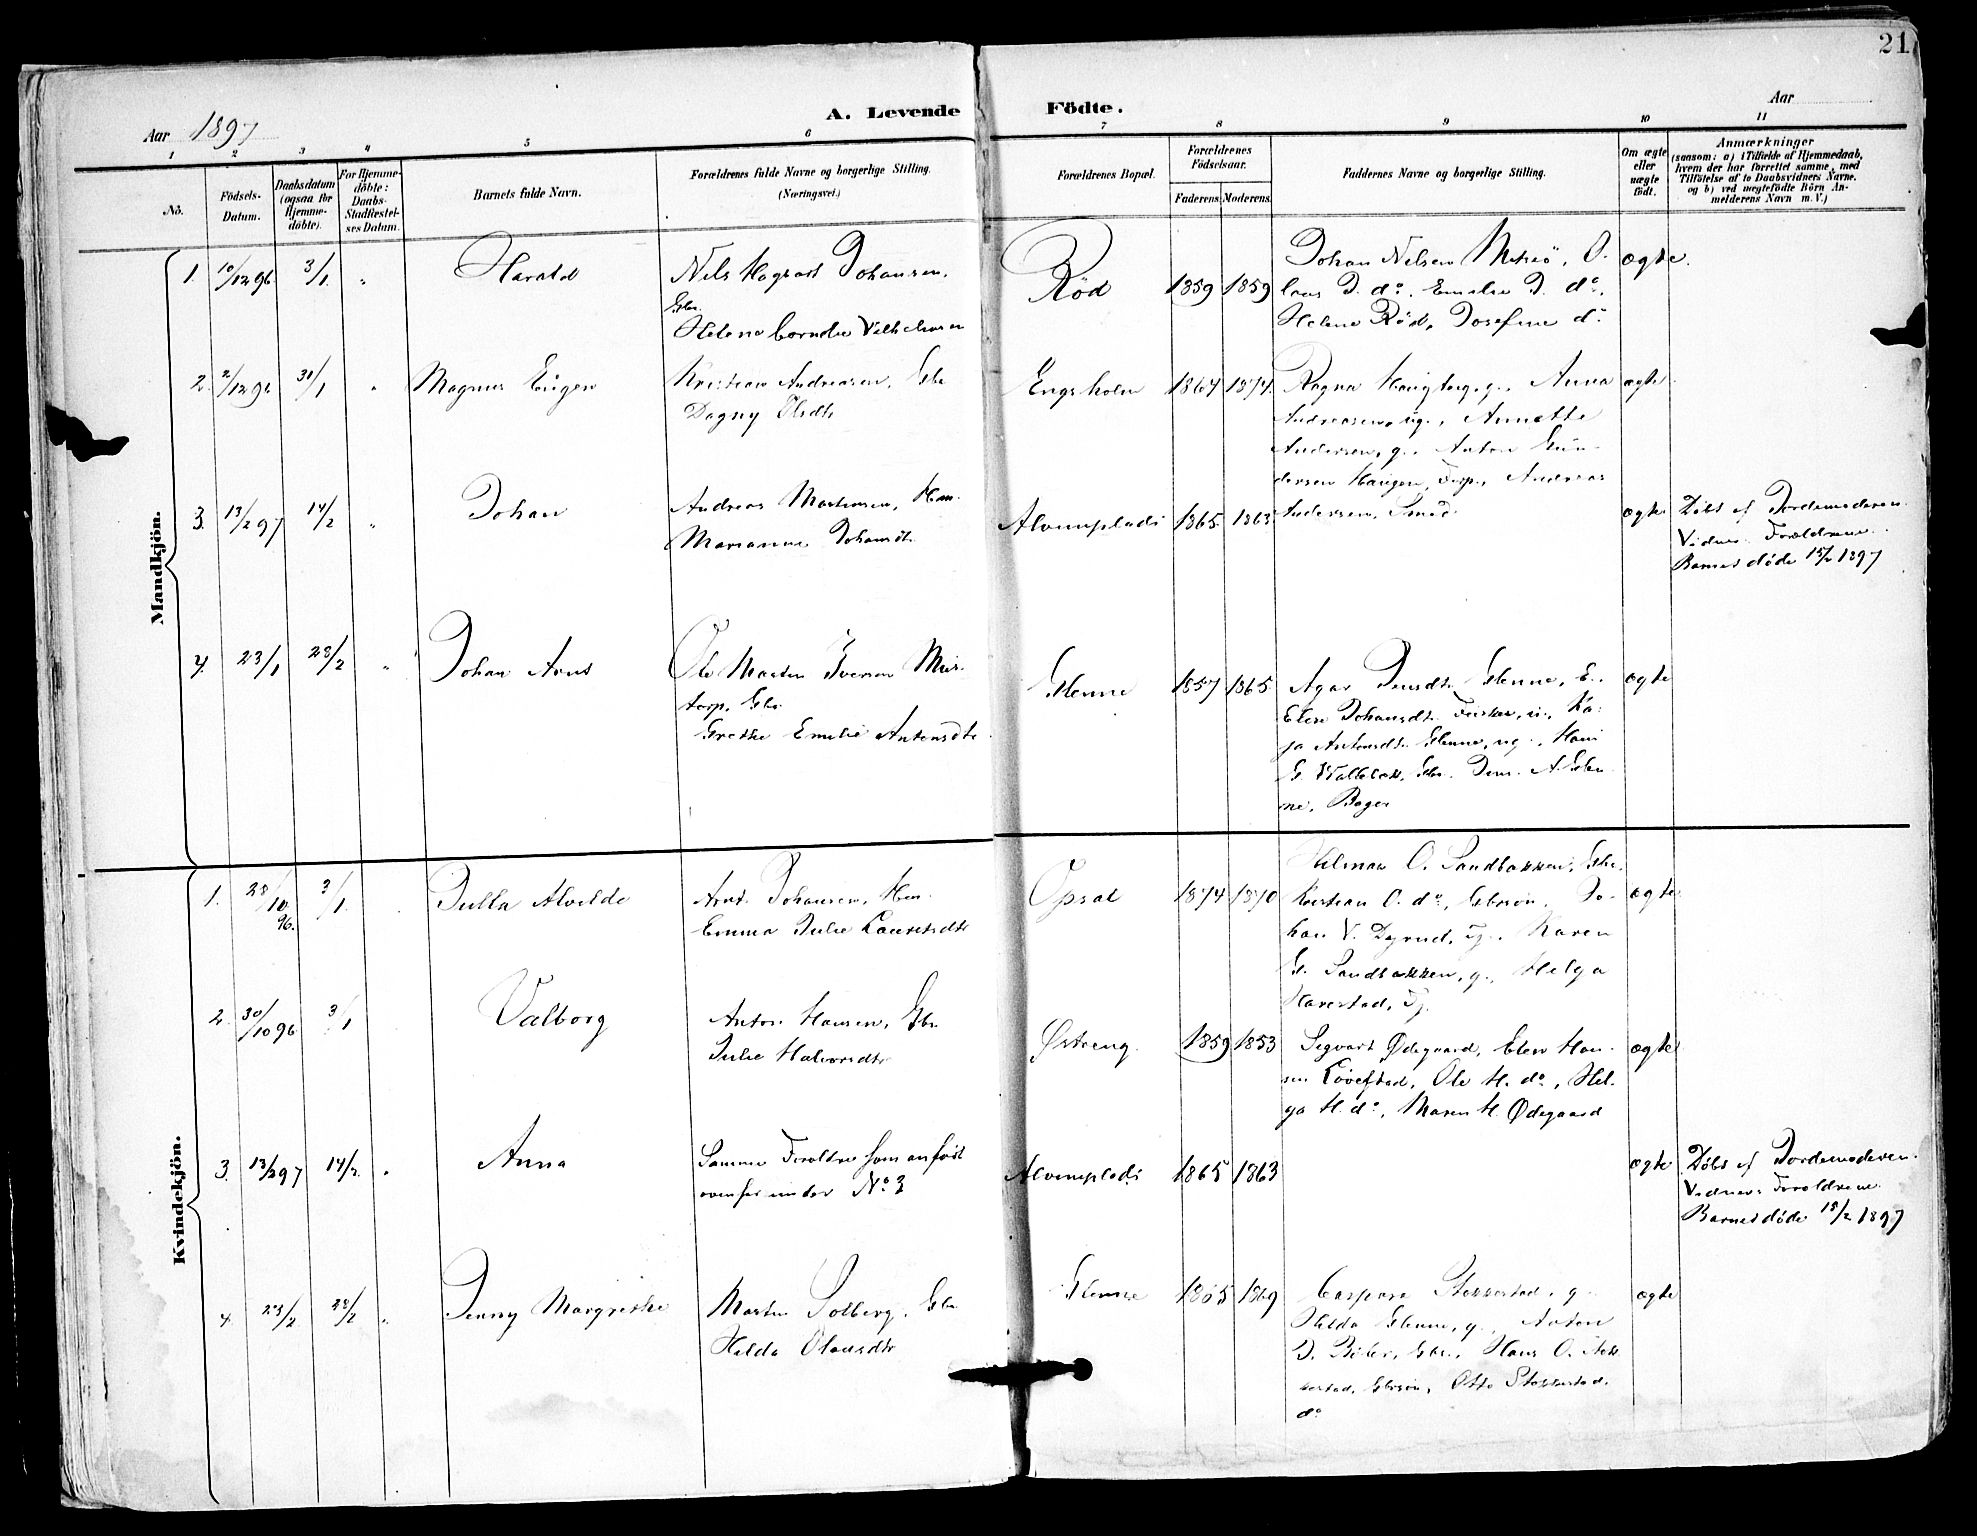 21
A. Levende Födte.
Aar 1897
Aar
1 2 3 4 5 6 7 8 9 10 11
Nô.
Födsels-
Datum.
Daabsdatum
(ogsaa for
Hjemme-
döbte).
For Hjemme-
döbte:
Daabs-
Stadfæstel-
ses Datum.
Barnets fulde Navn.
Forældrenes fulde Navne og borgerlige Stilling.
(Næringsvei.)
Forældrenes Bopæl.
Forældrenes
Födselsaar.
Faderens. Moderens.
Faddernes Navne og borgerlige Stilling.
Om ægte
eller
uægte
födt.
Anmærkninger
(saasom: a) i Tilfælde af Hjemmedaab,
hvem der har forrettet samme, med
Tilföielse af to Daabsvidners Navne.
og b) ved uægtefödte Börn An-
melderens Navn m. V.)
Mandkjön.
1. 10/12 96 3/1. " Harald
Nils Hagbart Johansen,
Gbr.
Helene Cornelia Vilhelmsen
Röd 1859 1859
Johan Nilsen O.
laus J. do. Emilie J. do.
Helene Röd, Josefine do
ægte.
2. 2/12 96 31/1 " Magnus Eugen
Kristian Andreasen, Gbr
Dagny Olsdtr
Engsholm 1864 1874.
Ragna g., Anna
Andreasen, ug., Annette
Andersen, g., Anton Gun-
dersen Haugen, Andreas
Andersen, Smed
ægte
3. 13/2 97 14/2 " Johan
Andreas Martinsen, Hm.
Marianne Johansdtr
Alvimplads 1865 1863
ægte
Döbt af Jordemoderen.
Vidner: Forældrene.
Barnet döde 15/2 1897
4. 23/1 28/2 " Johan Arnt
Ole Martin Iversen Mis-
torp, Gbr.
Grethe Emilie Antonsdtr.
Glenne 1857 1865
Agar Jensdtr. Glenne, E.
Elen Johansdtr. u., Ka-
ja Antonsdtr. Glenne, ug., Hans
G. Gbr. Jens A. Glen-
ne, Bager
ægte
Kvindekjön.
1. 28/10 96. 3/1. Julla Alvilde
Arnt Johansen, Hm.
Emma Julie Lauritsdtr
Opsal 1874 1870
Hilmar O. Sandbakken, Gbr.
Kristian O. do, Gbrsön, Jo-
han V. Dyrud, Tj., Karen
G. Sandbakken, g., Helga
Harestad, Tj.
ægte
2. 30/10 96 3/1 Valborg
Anton Hansen, Gbr
Julie Halvorsdtr
Østreng. 1859 1853
Segvart Ødegaard, Elen Han-
sen Ole H. do, Hel-
ga H. do, Maren H. Ødegaard
ægte
3. 13/2 97 14/2. " Anna
Samme Forældre som anfört
ovenfor under No 3
Alvimplads 1865 1863
ægte
Döbt af Jordemoderen.
Vidner: Forældrene.
Barnet döde 15/2 1897
4. 23/2 28/2 " Jenny Margrethe
Martin Solberg, Gbr
Hilda Olausdtr
Glenne 1865 1869
Caspara Stokkestad, g.
Hilda Glenne, g., Anton
J. Gbr., Hans O. Stok-
kestad, Gbrsön, Otto Stokkestad.
do
ægte